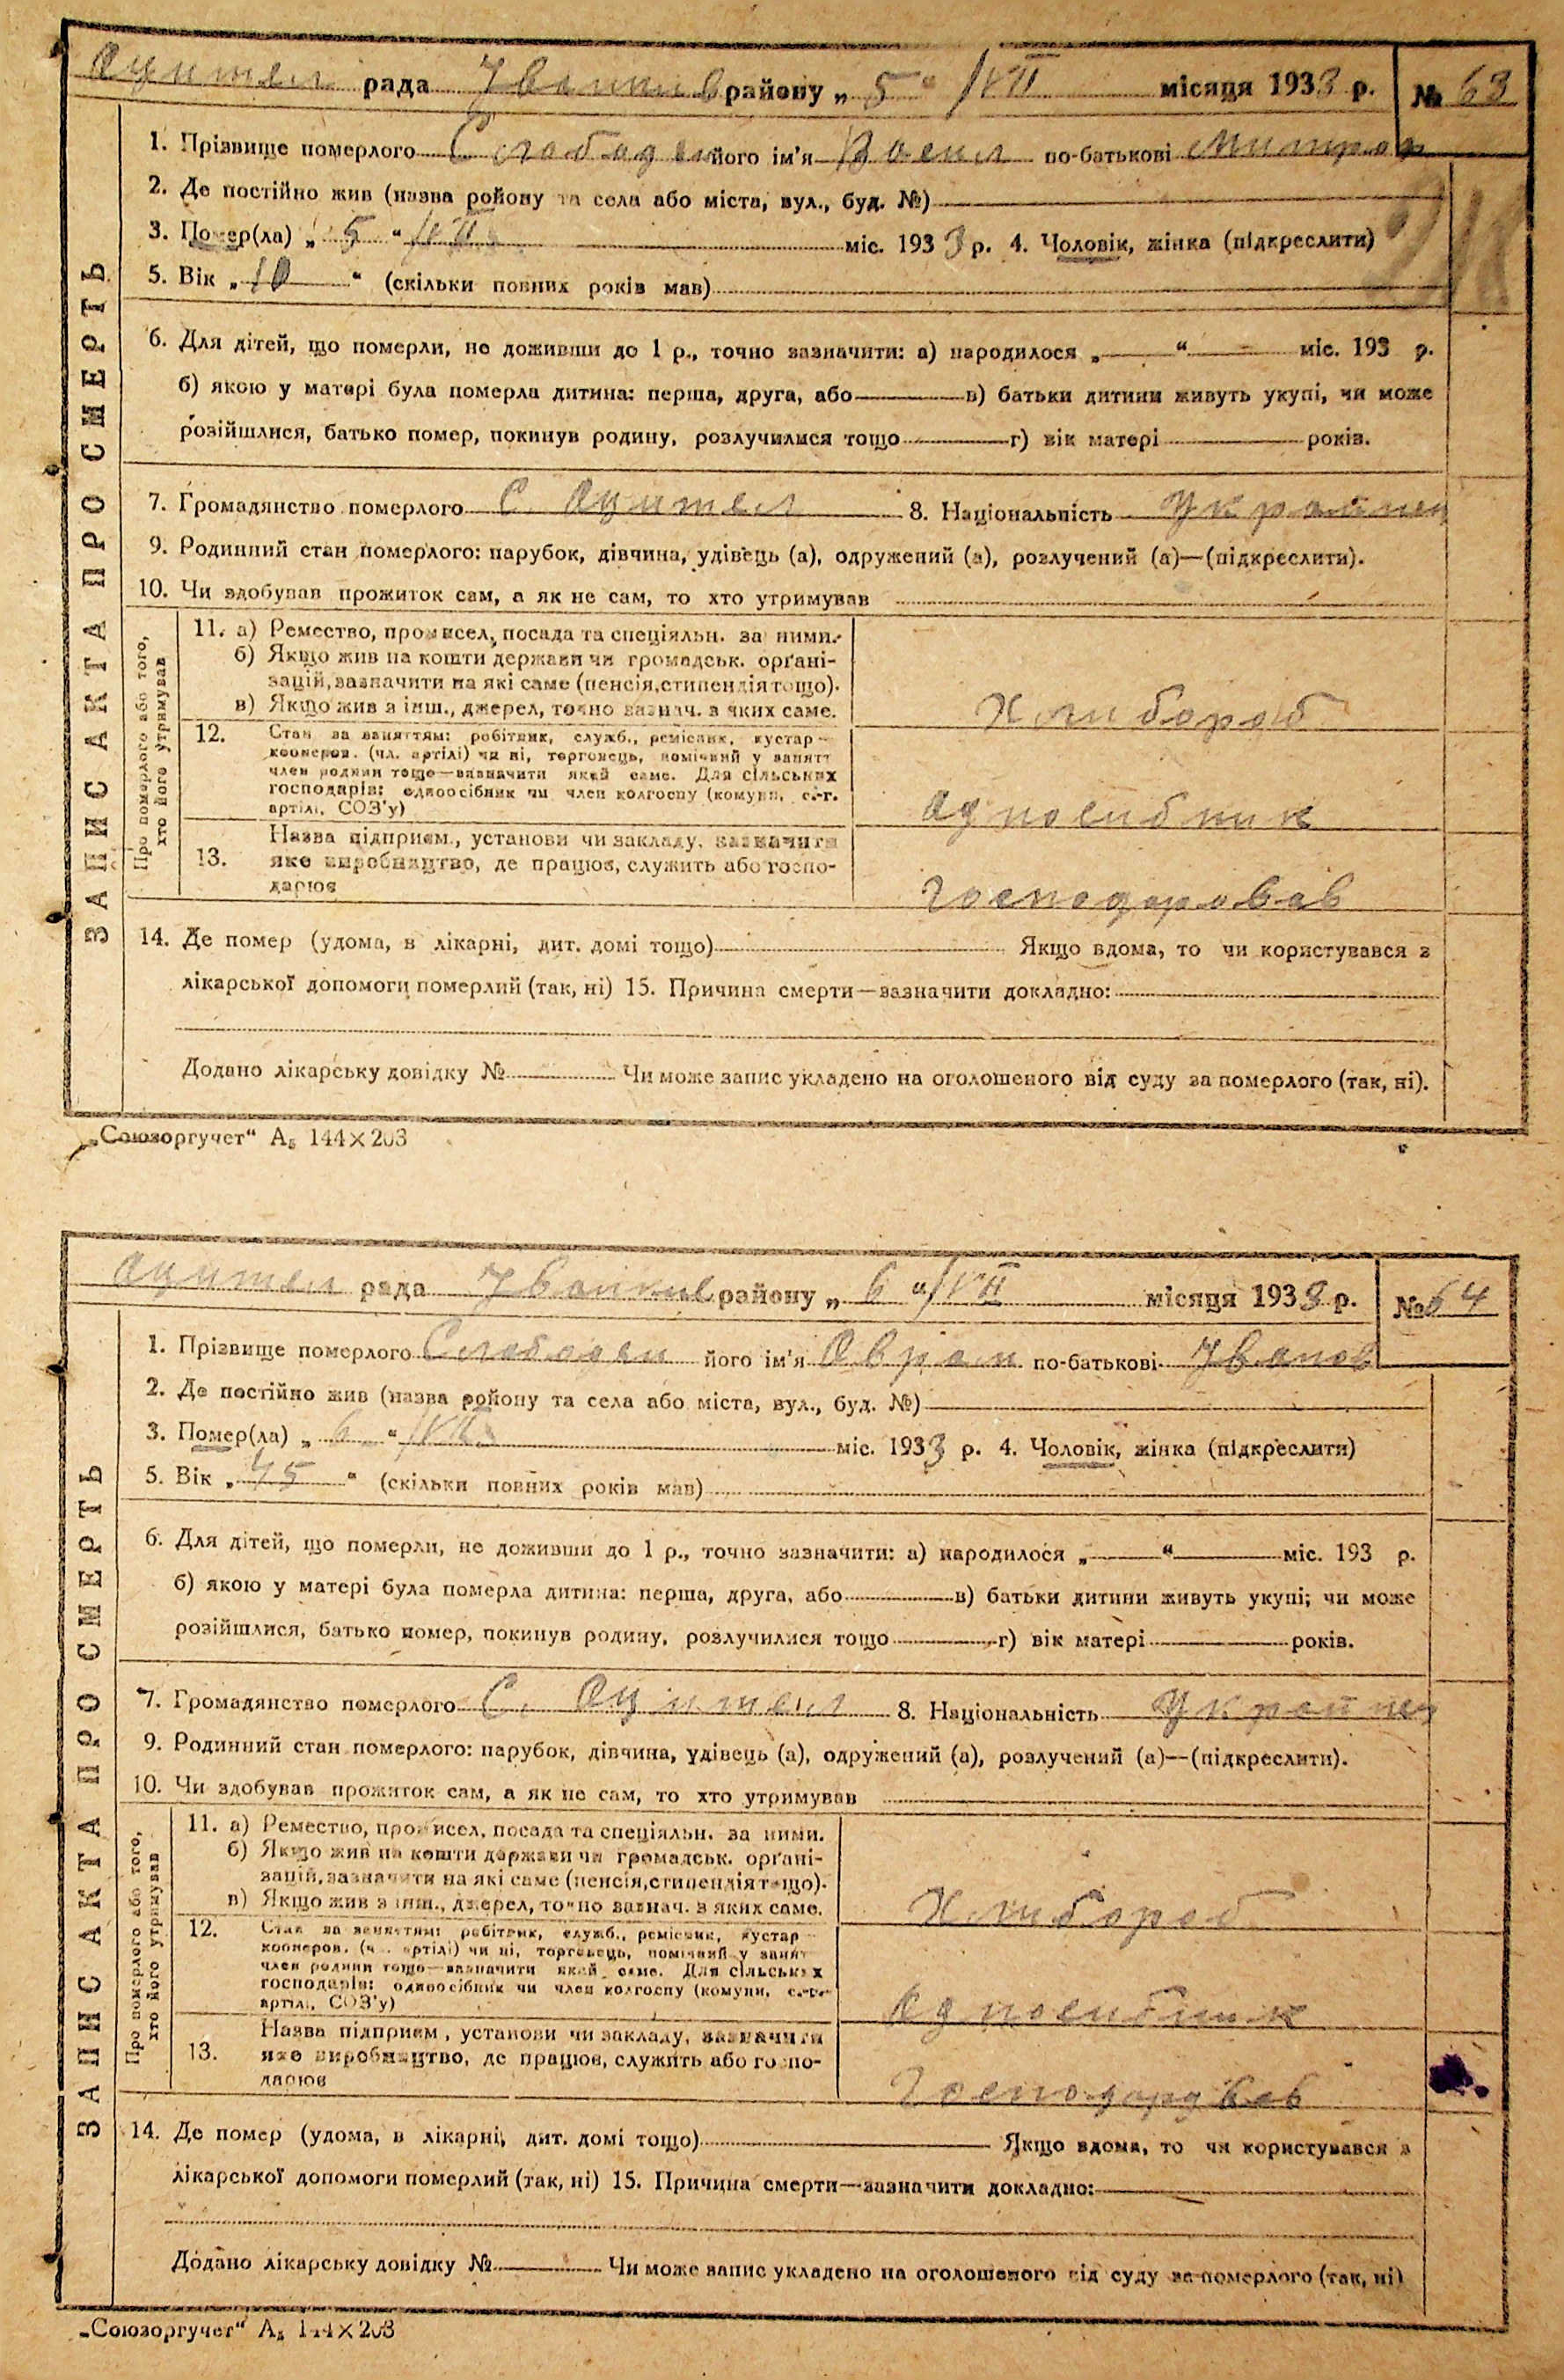 Оцител рада Іванків району „ 5 “ /VII місяця 1933 р. № 63
1. Прізвище померлого Слободен його ім'я Васил по-батькові Митров
2. Де постійно жив (назва ройону та села або міста, вул., буд. №)
3. Помер(ла) „ 5 “ /VII міс. 1933 р. 4. Чоловік, жінка (підкреслити)
5. Вік „ 10 “ (скільки повних років мав)
6. Для дітей, що померли, не доживши до 1 р., точно зазначити: а) народилося „ “ міс. 193 р.
б) якою у матері була померла дитина: перша, друга, або в) батьки дитини живуть укупі, чи може
розійшлися, батько помер, покинув родину, розлучилися тощо г) вік матері років.
7. Громадянство померлого С. Оцител 8. Національність Україпец
9. Родинний стан померлого: парубок, дівчина, удівець (а), одружений (а), розлучений (а)—(підкреслити).
10. Чи здобував прожиток сам, а як не сам, то хто утримував
ЗАПИС АКТА ПРО СМЕРТЬ
Про померлого або того,
хто його утримував
11. а) Ремество, промисел, посада та спеціяльн. за ними.
б) Якщо жив на кошти держави чи громадськ. органі-
зацій, зазначити на які саме (пенсія, стипендія тощо).
в) Якщо жив з інш., джерел, точно зазнач. з яких саме.
Хлибороб
12. Стан за заняттям: робітник, служб., ремісник, кустар
кооперов. (чл. артілі) чи ні, торговець, помічний у занятт
член родини тощо—зазначити який саме. Для сільських
господарів: одноосібник чи член колгоспу (комуни, с.-г.
артілі, СОЗ'у)
Односибник
13. Назва підприєм., установи чи закладу, зазначити
яке виробництво, де працює, служить або госпо-
дарює
Господаровав
14. Де помер (удома, в лікарні, дит. домі тощо) Якщо вдома, то чи користувався з
лікарської допомоги померлий (так, ні) 15. Причина смерти—зазначити докладно:
Додано лікарську довідку № Чи може запис укладено на оголошеного від суду за померлого (так, ні).
„Союзоргучет“ А5 144×203
Оцител рада Іванків району „ 6 “ /VII місяця 1933 р. № 64
1. Прізвище померлого Слободен його ім'я Оврам по-батькові Іванов
2. Де постійно жив (назва ройону та села або міста, вул., буд. №)
3. Помер(ла) „ 6 “ /VII міс. 1933 р. 4. Чоловік, жінка (підкреслити)
5. Вік „ 45 “ (скільки повних років мав)
6. Для дітей, що померли, не доживши до 1 р., точно зазначити: а) народилося „ “ міс. 193 р.
б) якою у матері була померла дитина: перша, друга, або в) батьки дитини живуть укупі; чи може
розійшлися, батько помер, покинув родину, розлучилися тощо г) вік матері років.
7. Громадянство померлого С. Оцител 8. Національність Україпец
9. Родинний стан померлого: парубок, дівчина, удівець (а), одружений (а), розлучений (а)—(підкреслити).
10. Чи здобував прожиток сам, а як не сам, то хто утримував
ЗАПИС АКТА ПРО СМЕРТЬ
Про померлого або того,
хто його утримував
11. а) Ремество, промисел, посада та спеціяльн. за ними.
б) Якщо жив на кошти держави чи громадськ. органі-
зацій, зазначити на які саме (пенсія, стипендія тощо).
в) Якщо жив з інш., джерел, точно зазнач. з яких саме.
Хлибороб
12. Стан за заняттям: робітник, служб., ремісник, кустар
кооперов. (чл. артілі) чи ні, торговець, помічний у занят
член родини тощо—зазначити який саме. Для сільських
господарів: одноосібник чи член колгоспу (комуни, с.-г.
артілі, СОЗ'у)
Односибник
13. Назва підприєм., установи чи закладу, зазначити
яке виробництво, де працює, служить або госпо-
дарює
Господарував
14. Де помер (удома, в лікарні, дит. домі тощо) Якщо вдома, то чи користувався з
лікарської допомоги померлий (так, ні) 15. Причина смерти—зазначити докладно:
Додано лікарську довідку № Чи може запис укладено на оголошеного від суду за померлого (так, ні)
„Союзоргучет“ А5 144×203